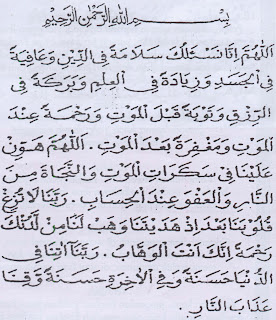 بِسْمِ اللهِ الرَّحْمٰنِ الرَّحِيْمِ
اَللّٰهُمَّ اِنَّا نَسْئَلُكَ سَلَامَةً فِى الدِّيْنِ وَعَافِيَةً
فِى الْجَسَدِ وَزِيَادَةً فِى الْعِلْمِ وَبَرَكَةً فِى
الرِّزْقِ وَتَوْبَةً قَبْلَ الْمَوْتِ وَرَحْمَةً عِنْدَ
الْمَوْتِ وَمَغْفِرَةً بَعْدَ الْمَوْتِ. اَللّٰهُمَّ هَوِّنْ
عَلَيْنَا فِى سَكَرَاتِ الْمَوْتِ وَالنَّجَاةَ مِنَ
النَّارِ وَالْعَفْوَ عِنْدَ الْحِسَابِ. رَبَّنَا لَا تُزِغْ
قُلُوْبَنَا بَعْدَ اِذْ هَدَيْتَنَا وَهَبْ لَنَا مِنْ لَدُنْكَ
رَحْمَةً اِنَّكَ اَنْتَ الْوَهَّابُ. رَبَّنَا اٰتِنَا فِى
الدُّنْيَا حَسَنَةً وَفِى الْاٰخِرَةِ حَسَنَةً وَقِنَا
عَذَابَ النَّارِ.